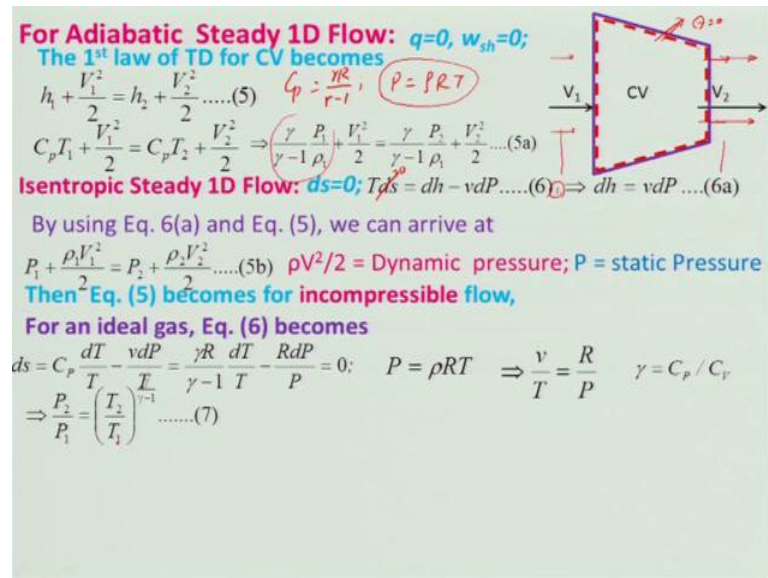 For Adiabatic Steady 1D Flow: q=0, w_sh=0;
The 1st law of TD for CV becomes
h₁ + V₁²/2 = h₂ + V₂²/2 .....(5) Cp = γR/γ-1 ; P = ρRT
Q=0
V₁ CV V₂
CₚT₁ + V₁²/2 = CₚT₂ + V₂²/2 ⇒ γ/γ−1 P₁/ρ₁ + V₁²/2 = γ/γ−1 P₂/ρ₁ + V₂²/2 ....(5a)
Isentropic Steady 1D Flow: ds=0; Tds = dh − vdP.....(6) ⇒ dh = vdP ....(6a)
By using Eq. 6(a) and Eq. (5), we can arrive at
P₁ + ρ₁V₁²/2 = P₂ + ρ₂V₂²/2 .....(5b) ρV²/2 = Dynamic pressure; P = static Pressure
Then Eq. (5) becomes for incompressible flow,
For an ideal gas, Eq. (6) becomes
ds = C_P dT/T − vdP/T = γR/γ−1 dT/T − RdP/P = 0; P = ρRT ⇒ v/T = R/P γ = C_P / C_v
⇒ P₂/P₁ = (T₂/T₁)^γ/γ−1 .......(7)